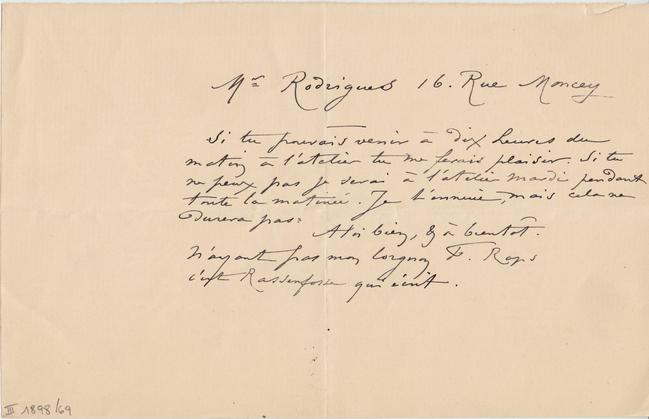 Mr Rodrigues 16. Rue Moncey
Si tu pouvais venir à dix heures du
matin à l'atelier tu me ferais plaisir. Si tu
ne peux pas je serai à l'atelier mardi pendant
toute la matinée. Je t'ennuie, mais cela ne
durera pas.
A toi bien, & à bientôt.
N'ayant pas mon lorgnon F. Rops
c'est Rassenfosse qui écrit.
III 1898/69